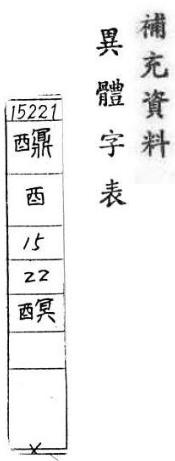 補充資料
異體字表
15221
酉
15
22
X